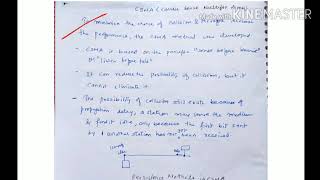 CSMA (Carrier Sense Multiple Access)
Made with KINEMASTER
To minimize the chance of collision & therefore increase
the performance, the CSMA method was developed
- CSMA is based on the principle "sense before transmit"
or "listen before talk"
- It can reduce the possibility of collision, but it
cannot eliminate it.
- The possibility of collision still exists because of
propagation delay, a station may sense the medium
& find it idle, only because the first bit sent
by another station has not yet been received.
Persistence Methods in CSMA